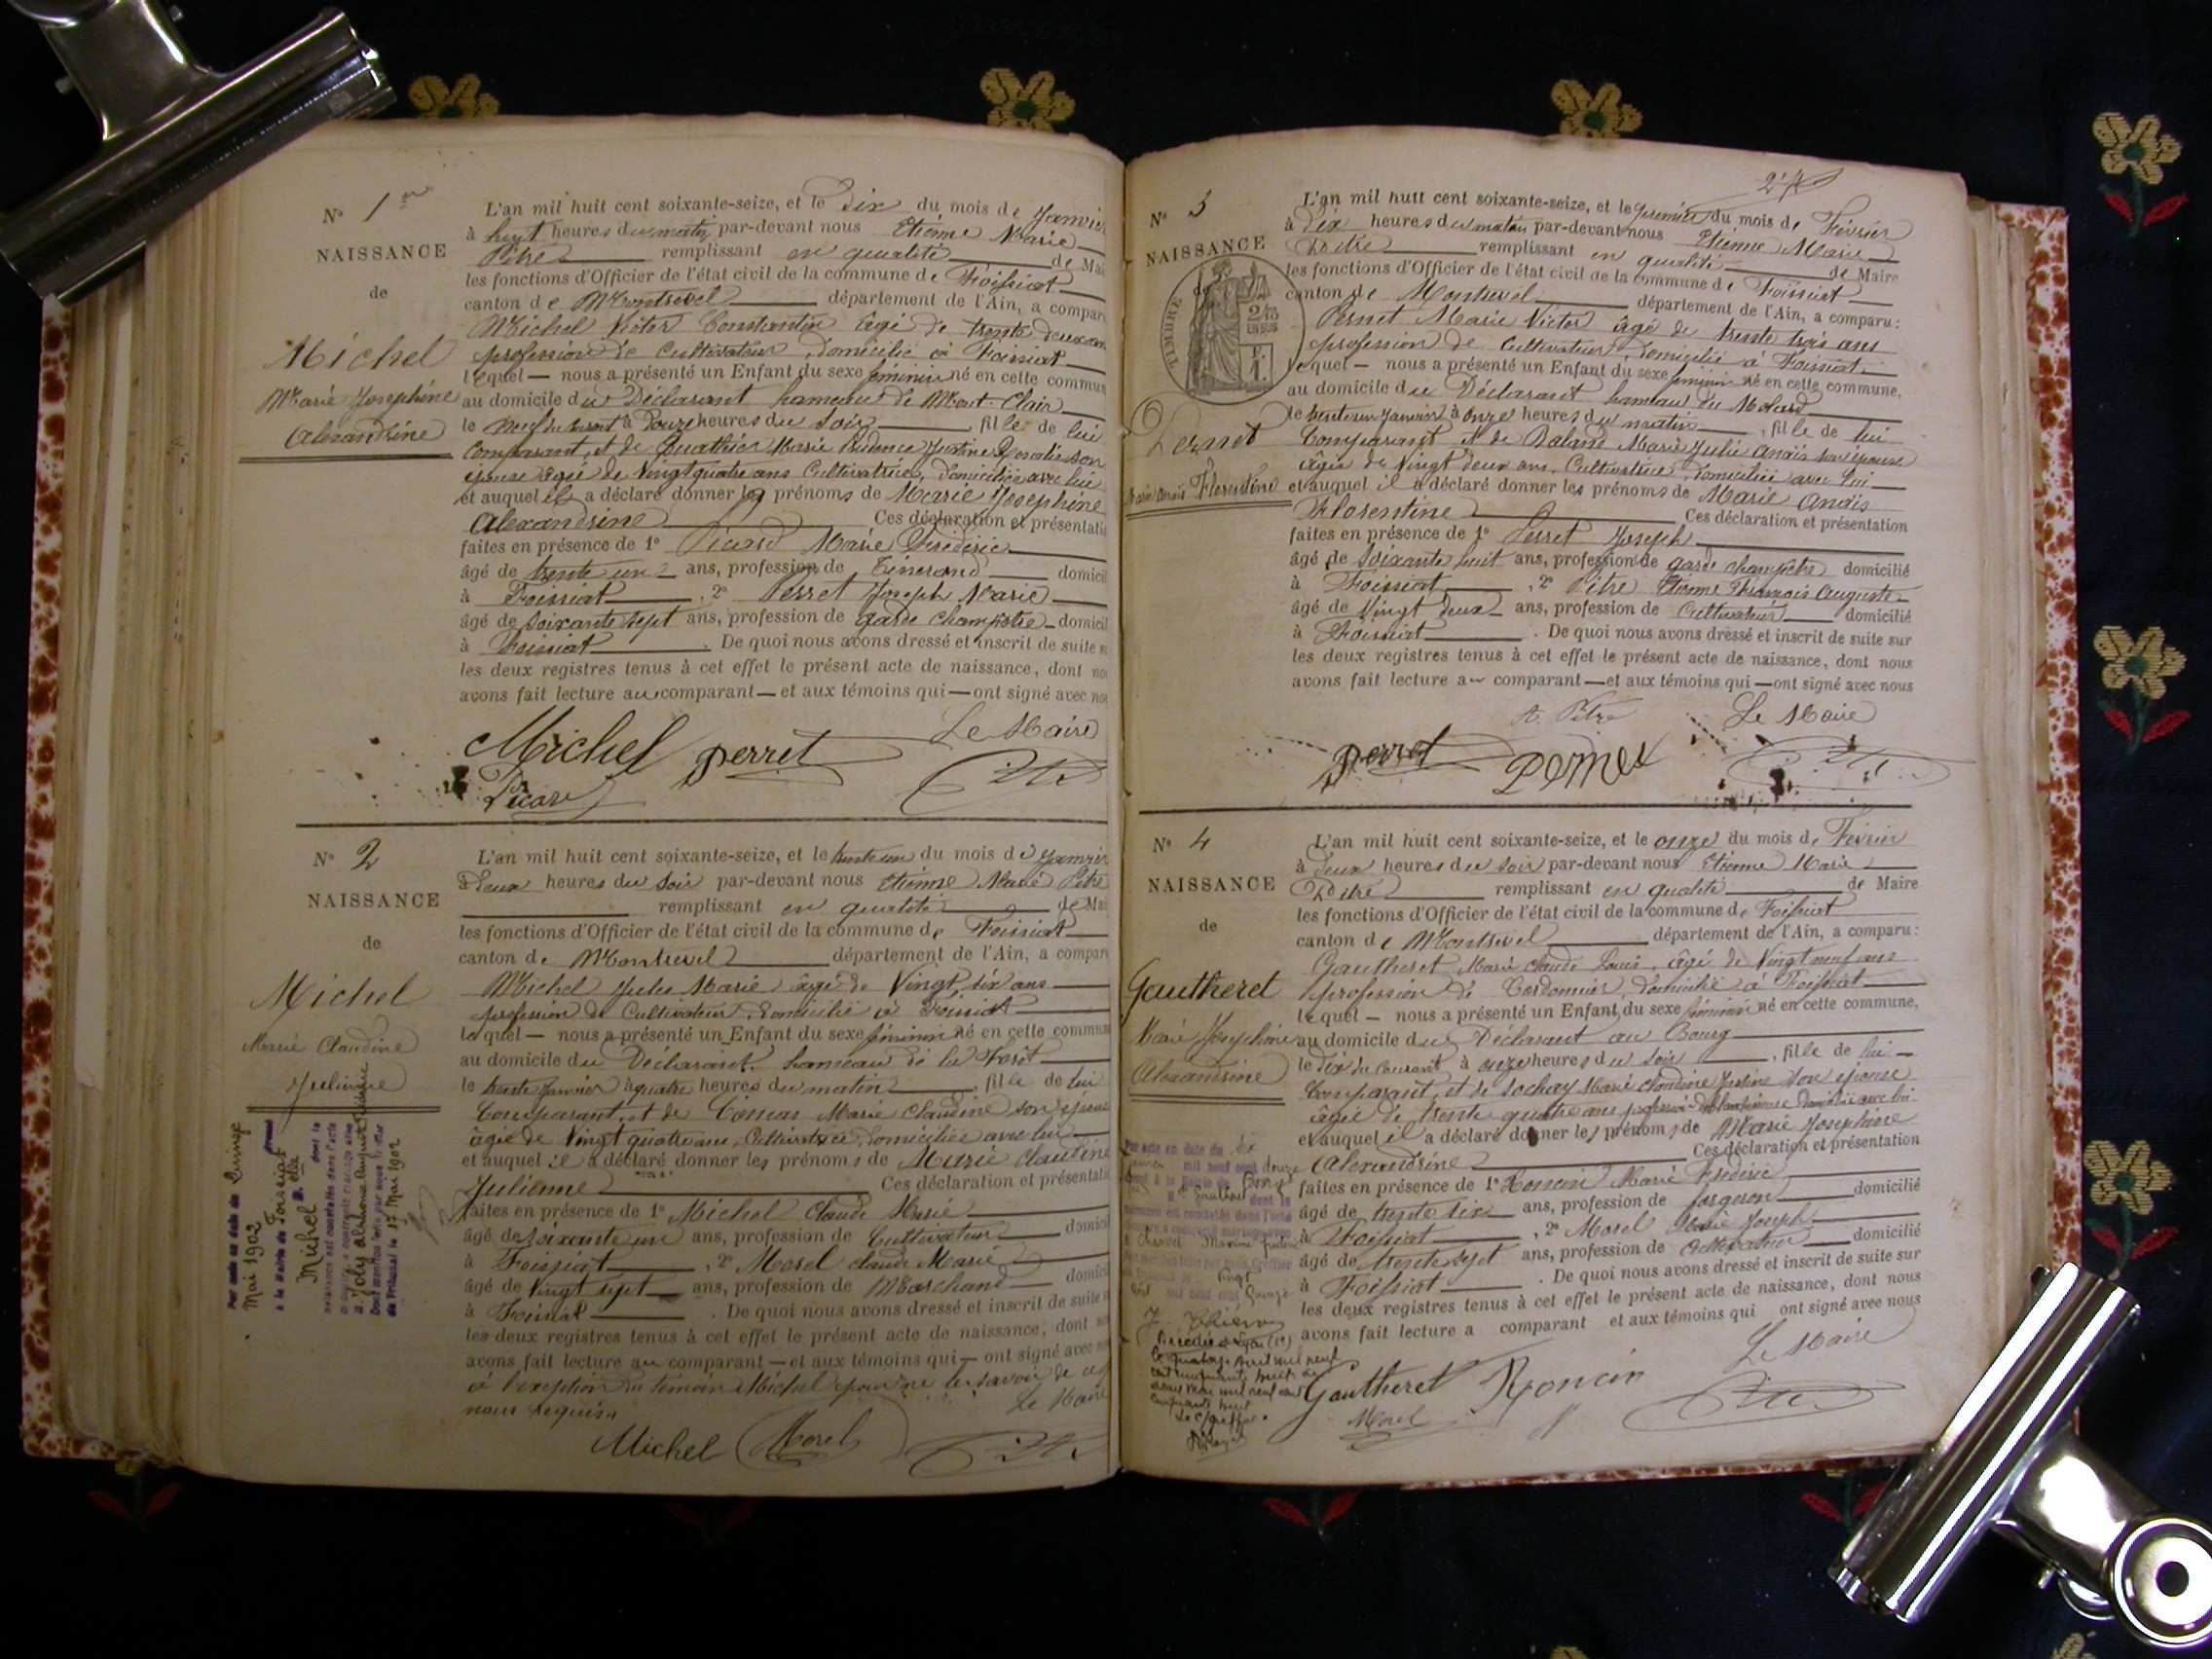 N° 1er
NAISSANCE
de
Michel
Marie Josephine
Alexandrine
L'an mil huit cent soixante-seize, et le Dix du mois de Janvier
à huit heures du matin par-devant nous Etienne Marie
Pitre remplissant en qualité de Mai
les fonctions d'Officier de l'état civil de la commune de Foissiat
canton de Montrevel département de l'Ain, a comparu
Michel Victor Constantin âgé de trente deux ans
profession de Cultivateur, domicilié à Foissiat
lequel — nous a présenté un Enfant du sexe féminin né en cette commun
au domicile du Déclarant hameau de Mont Clair
le neuf du courant à Douze heures du Soir, fille de lui
Comparant, et de Marie Prudence Justine Rosalie son
épouse âgée de Vingt quatre ans Cultivatrice, domiciliée avec lui
et auquel il a déclaré donner les prénoms de Marie Josephine
Alexandrine Ces déclaration et présentatio
faites en présence de 1° Picard Marie Frédéric
âgé de trente un ans, profession de domicil
à Foissiat, 2° Perret Joseph Marie
âgé de soixante sept ans, profession de garde champêtre domicil
à Foissiat. De quoi nous avons dressé et inscrit de suite s
les deux registres tenus à cet effet le présent acte de naissance, dont no
avons fait lecture au comparant — et aux témoins qui — ont signé avec no
Le Maire
Michel perret
Picard
N° 2
NAISSANCE
de
Michel
Marie Claudine
Julienne
L'an mil huit cent soixante-seize, et le trente un du mois de Janvier
à Deux heures du Soir par-devant nous Etienne Marie Pitre
remplissant en qualité de Mai
les fonctions d'Officier de l'état civil de la commune de Foissiat
canton de Montrevel département de l'Ain, a compar
Michel Jules Marie âgé de Vingt six ans
profession de Cultivateur, domicilié à Foissiat
lequel — nous a présenté un Enfant du sexe féminin né en cette commun
au domicile du Déclarant, hameau de la Foret
le trente Janvier à quatre heures du matin, fille de lui
Comparant, et de Marie Claudine son épouse
âgée de Vingt quatre ans, Cultivatrice, domiciliée avec lui
et auquel il a déclaré donner les prénoms de Marie Claudine
Julienne Ces déclaration et présentatio
faites en présence de 1° Michel Claude Marie
âgé de soixante un ans, profession de Cultivateur domicil
à Foissiat, 2° Morel Claude Marie
âgé de Vingt sept ans, profession de Marchand domicil
à Foissiat. De quoi nous avons dressé et inscrit de suite s
les deux registres tenus à cet effet le présent acte de naissance, dont no
avons fait lecture au comparant — et aux témoins qui — ont signé avec no
à l'exception du témoin Michel pour ne le savoir de ce
nous requis
Le Maire
Michel Morel
Par acte en date du Quinze
Mai 1902
à la Mairie de Foissiat
Michel
dont la
naissance est constatée dans l'acte
a contracté mariage avec
M. Joly Alphonse Auguste
du Tribunal le 17 Mai 1902
N° 3
NAISSANCE
de
TIMBRE
Pernet
Marie Anaïs Florentine
L'an mil huit cent soixante-seize, et le premier du mois de Février
à Dix heures du matin par-devant nous Etienne Marie
Pitre remplissant en qualité de Maire
les fonctions d'Officier de l'état civil de la commune de Foissiat
canton de Montrevel département de l'Ain, a comparu:
Pernet Marie Victor âgé de trente trois ans
profession de Cultivateur, domicilié à Foissiat
lequel — nous a présenté un Enfant du sexe féminin né en cette commune,
au domicile du Déclarant hameau du Molard
le trente un Janvier à onze heures du matin, fille de lui
Comparant et de Baland Marie Julie Anaïs son épouse
âgée de Vingt deux ans, Cultivatrice, domiciliée avec lui
et auquel il a déclaré donner les prénoms de Marie Anaïs
Florentine Ces déclaration et présentation
faites en présence de 1° Perret Joseph
âgé de soixante huit ans, profession de garde champêtre domicilié
à Foissiat, 2° Pitre Etienne François Auguste
âgé de Vingt deux ans, profession de Cultivateur domicilié
à Foissiat. De quoi nous avons dressé et inscrit de suite sur
les deux registres tenus à cet effet le présent acte de naissance, dont nous
avons fait lecture au comparant — et aux témoins qui — ont signé avec nous
A. Pitre Le Maire
perret pernet
N° 4
NAISSANCE
de
Gautheret
Marie Josephine
Alexandrine
L'an mil huit cent soixante-seize, et le onze du mois de Février
à Deux heures du soir par-devant nous Etienne Marie
Pitre remplissant en qualité de Maire
les fonctions d'Officier de l'état civil de la commune de Foissiat
canton de Montrevel département de l'Ain, a comparu:
Gautheret Marie Claude Louis, âgé de Vingt neuf ans
profession de Cordonnier, domicilié à Foissiat
lequel — nous a présenté un Enfant du sexe féminin né en cette commune,
au domicile du Déclarant au Bourg
le Dix du Courant à onze heures du soir, fille de lui
Comparant, et de Sochay Marie Claudine Justine son épouse
âgée de trente quatre ans profession de domiciliée avec lui
et auquel il a déclaré donner les prénoms de Marie Josephine
Alexandrine Ces déclaration et présentation
faites en présence de 1° Roncin Marie Frédéric
âgé de trente six ans, profession de forgeron domicilié
à Foissiat, 2° Morel Marie Joseph
âgé de trente sept ans, profession de Cultivateur domicilié
à Foissiat. De quoi nous avons dressé et inscrit de suite sur
les deux registres tenus à cet effet le présent acte de naissance, dont nous
avons fait lecture a comparant et aux témoins qui ont signé avec nous
Le Maire
Gautheret Roncin
Morel
Décédée à Lyon
le quatorze Avril mil neuf
cent cinquante huit
mil neuf cent
cinquante huit
Le Greffier